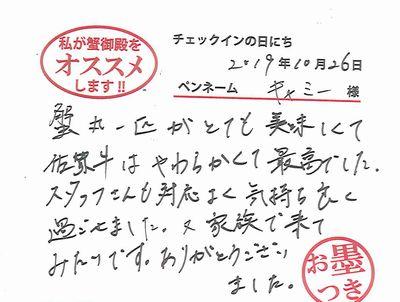 私が蟹御殿を
オススメ
します!!
チェックインの日にち
2019年10月26日
ペンネーム キャミー 様
蟹丸一匹がとても美味しくて
佐賀牛はやわらかくて最高でした。
スタッフさんも対応よく気持ち良く
過ごせました。又家族で来て
みたいです。ありがとうござい
ました。
お墨
つき